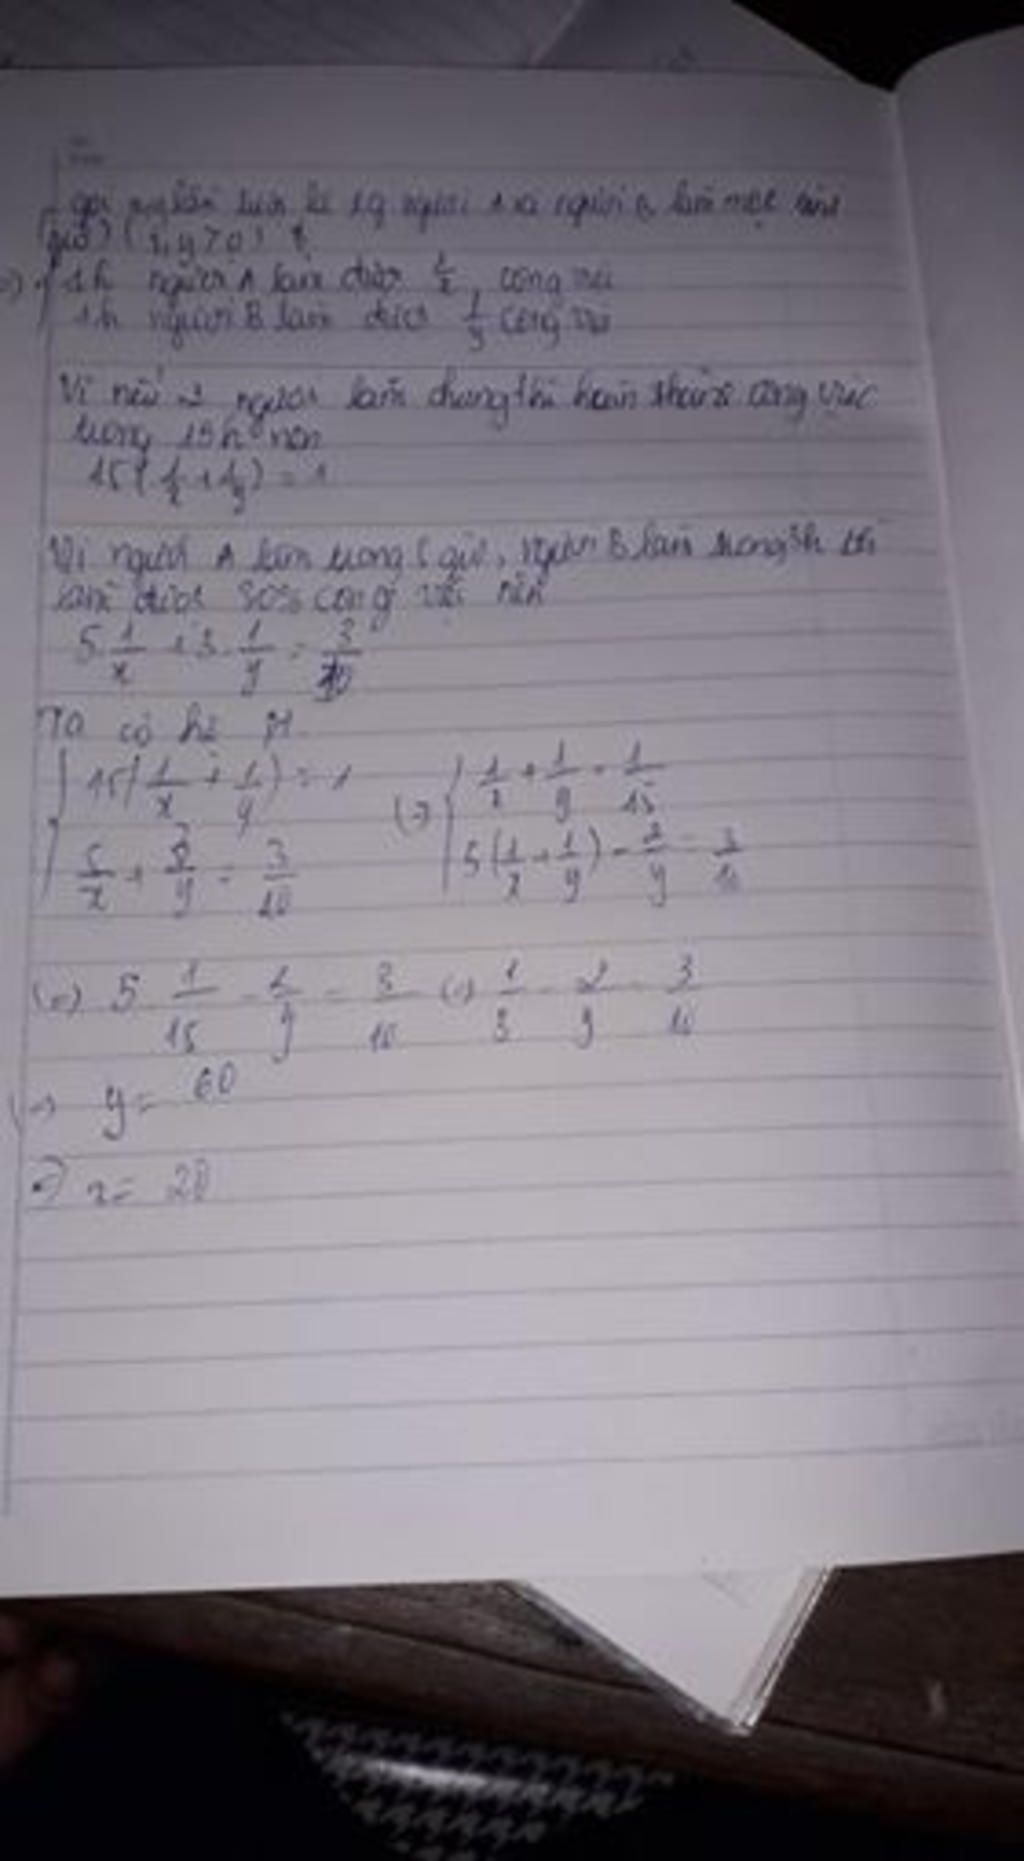 gọi lần lượt là tg người và người B làm một mình
(giờ) (x, y > 0)
=> 1h người A làm được 1/x công việc
1h người B làm được 1/y công việc
Vì nếu 2 người làm chung thì hoàn thành công việc
trong 15h nên
15(1/x + 1/y) = 1
Vì người A làm trong 5 giờ, người B làm trong 3h thì
làm được 30% công việc nên
5. 1/x + 3. 1/y = 3/10
Ta có hệ pt
15(1/x + 1/y) = 1 (=) 1/x + 1/y = 1/15
5/x + 3/y = 3/10 5(1/x + 1/y) - 2/y = 3/10
(=) 5 1/15 - 2/y = 3/10 (=) 1/3 - 2/y = 3/10
(=) y = 60
=) x = 20